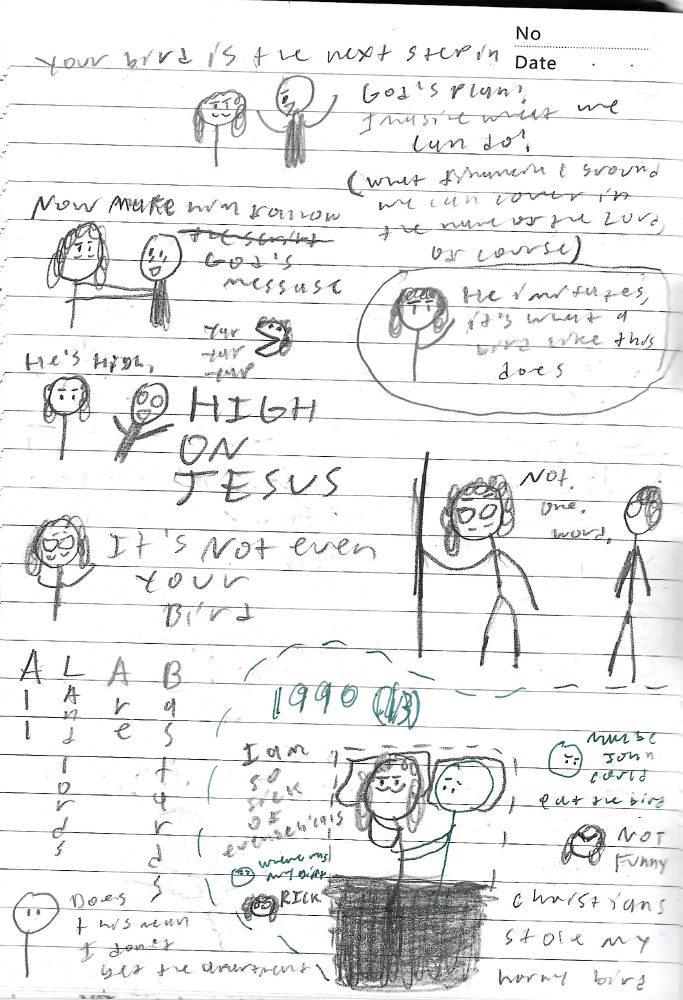 No
Date
Your bird is the next step in
God's plan!
Imagine what we
can do!
(what ground
we can cover in
the name of the Lord,
of course)
Now make him follow
the script
God's
message
He imitates,
it's what a
bird like this
does
He's High,
HIGH
ON
JESUS
Not.
one.
word.
It's Not even
your
Bird
A L A B
All
Landlords
Are
Bastards
1990 (1/3)
I am
so
sick
of
evangelicals
where was
my bird
RICK
maybe
John
could
eat the bird
NOT
Funny
Christians
stole my
horny bird
Does
this mean
I don't
get the apartment